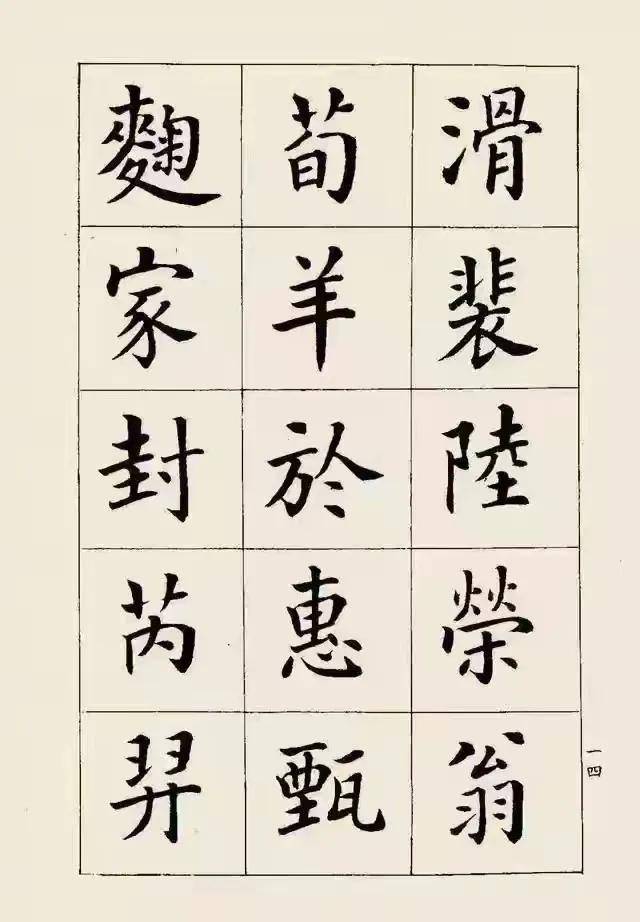 滑裴陸榮翁
荀羊於惠甄
麴家封芮羿
一四